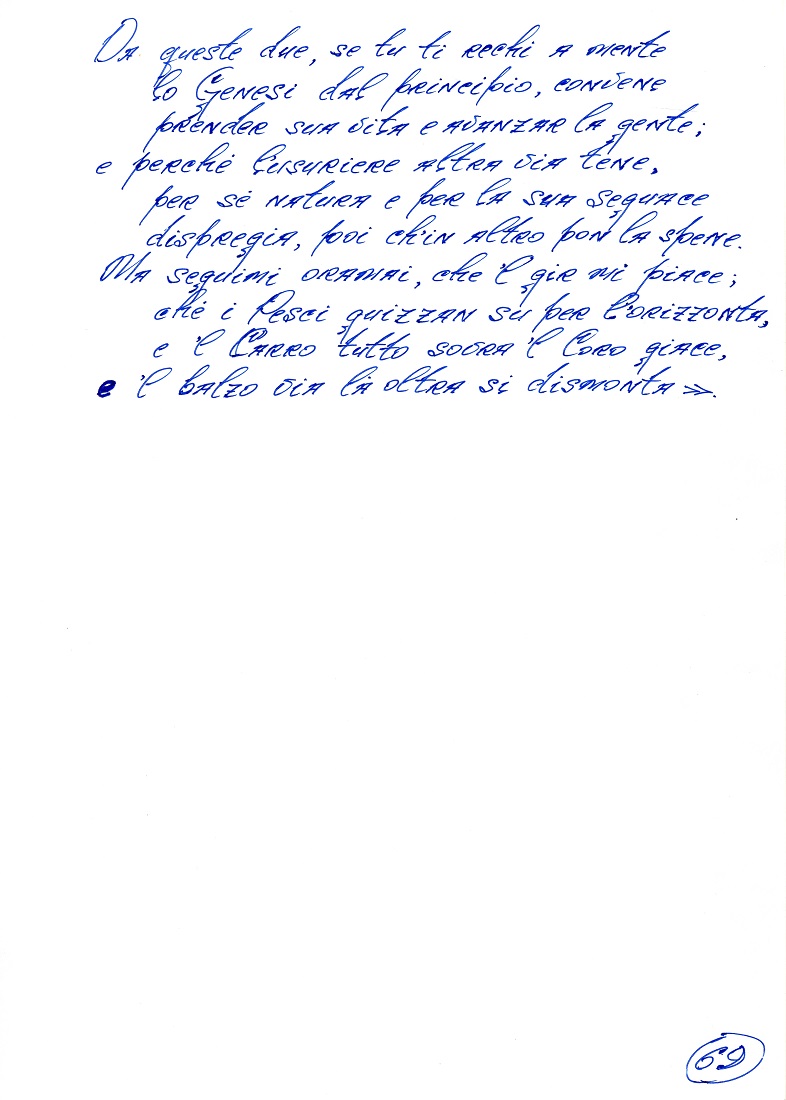 Da queste due, se tu ti rechi a mente
lo Genesi dal principio, convene
prender sua vita e avanzar la gente;
e perché l'usuriere altra via tene,
per sé natura e per la sua seguace
dispregia, poi ch'in altro pon la spene.
Ma seguimi oramai, che 'l gir mi piace;
ché i Pesci guizzan su per l'orizzonta,
e 'l Carro tutto sovra 'l Coro giace,
e 'l balzo via là oltra si dismonta».
69